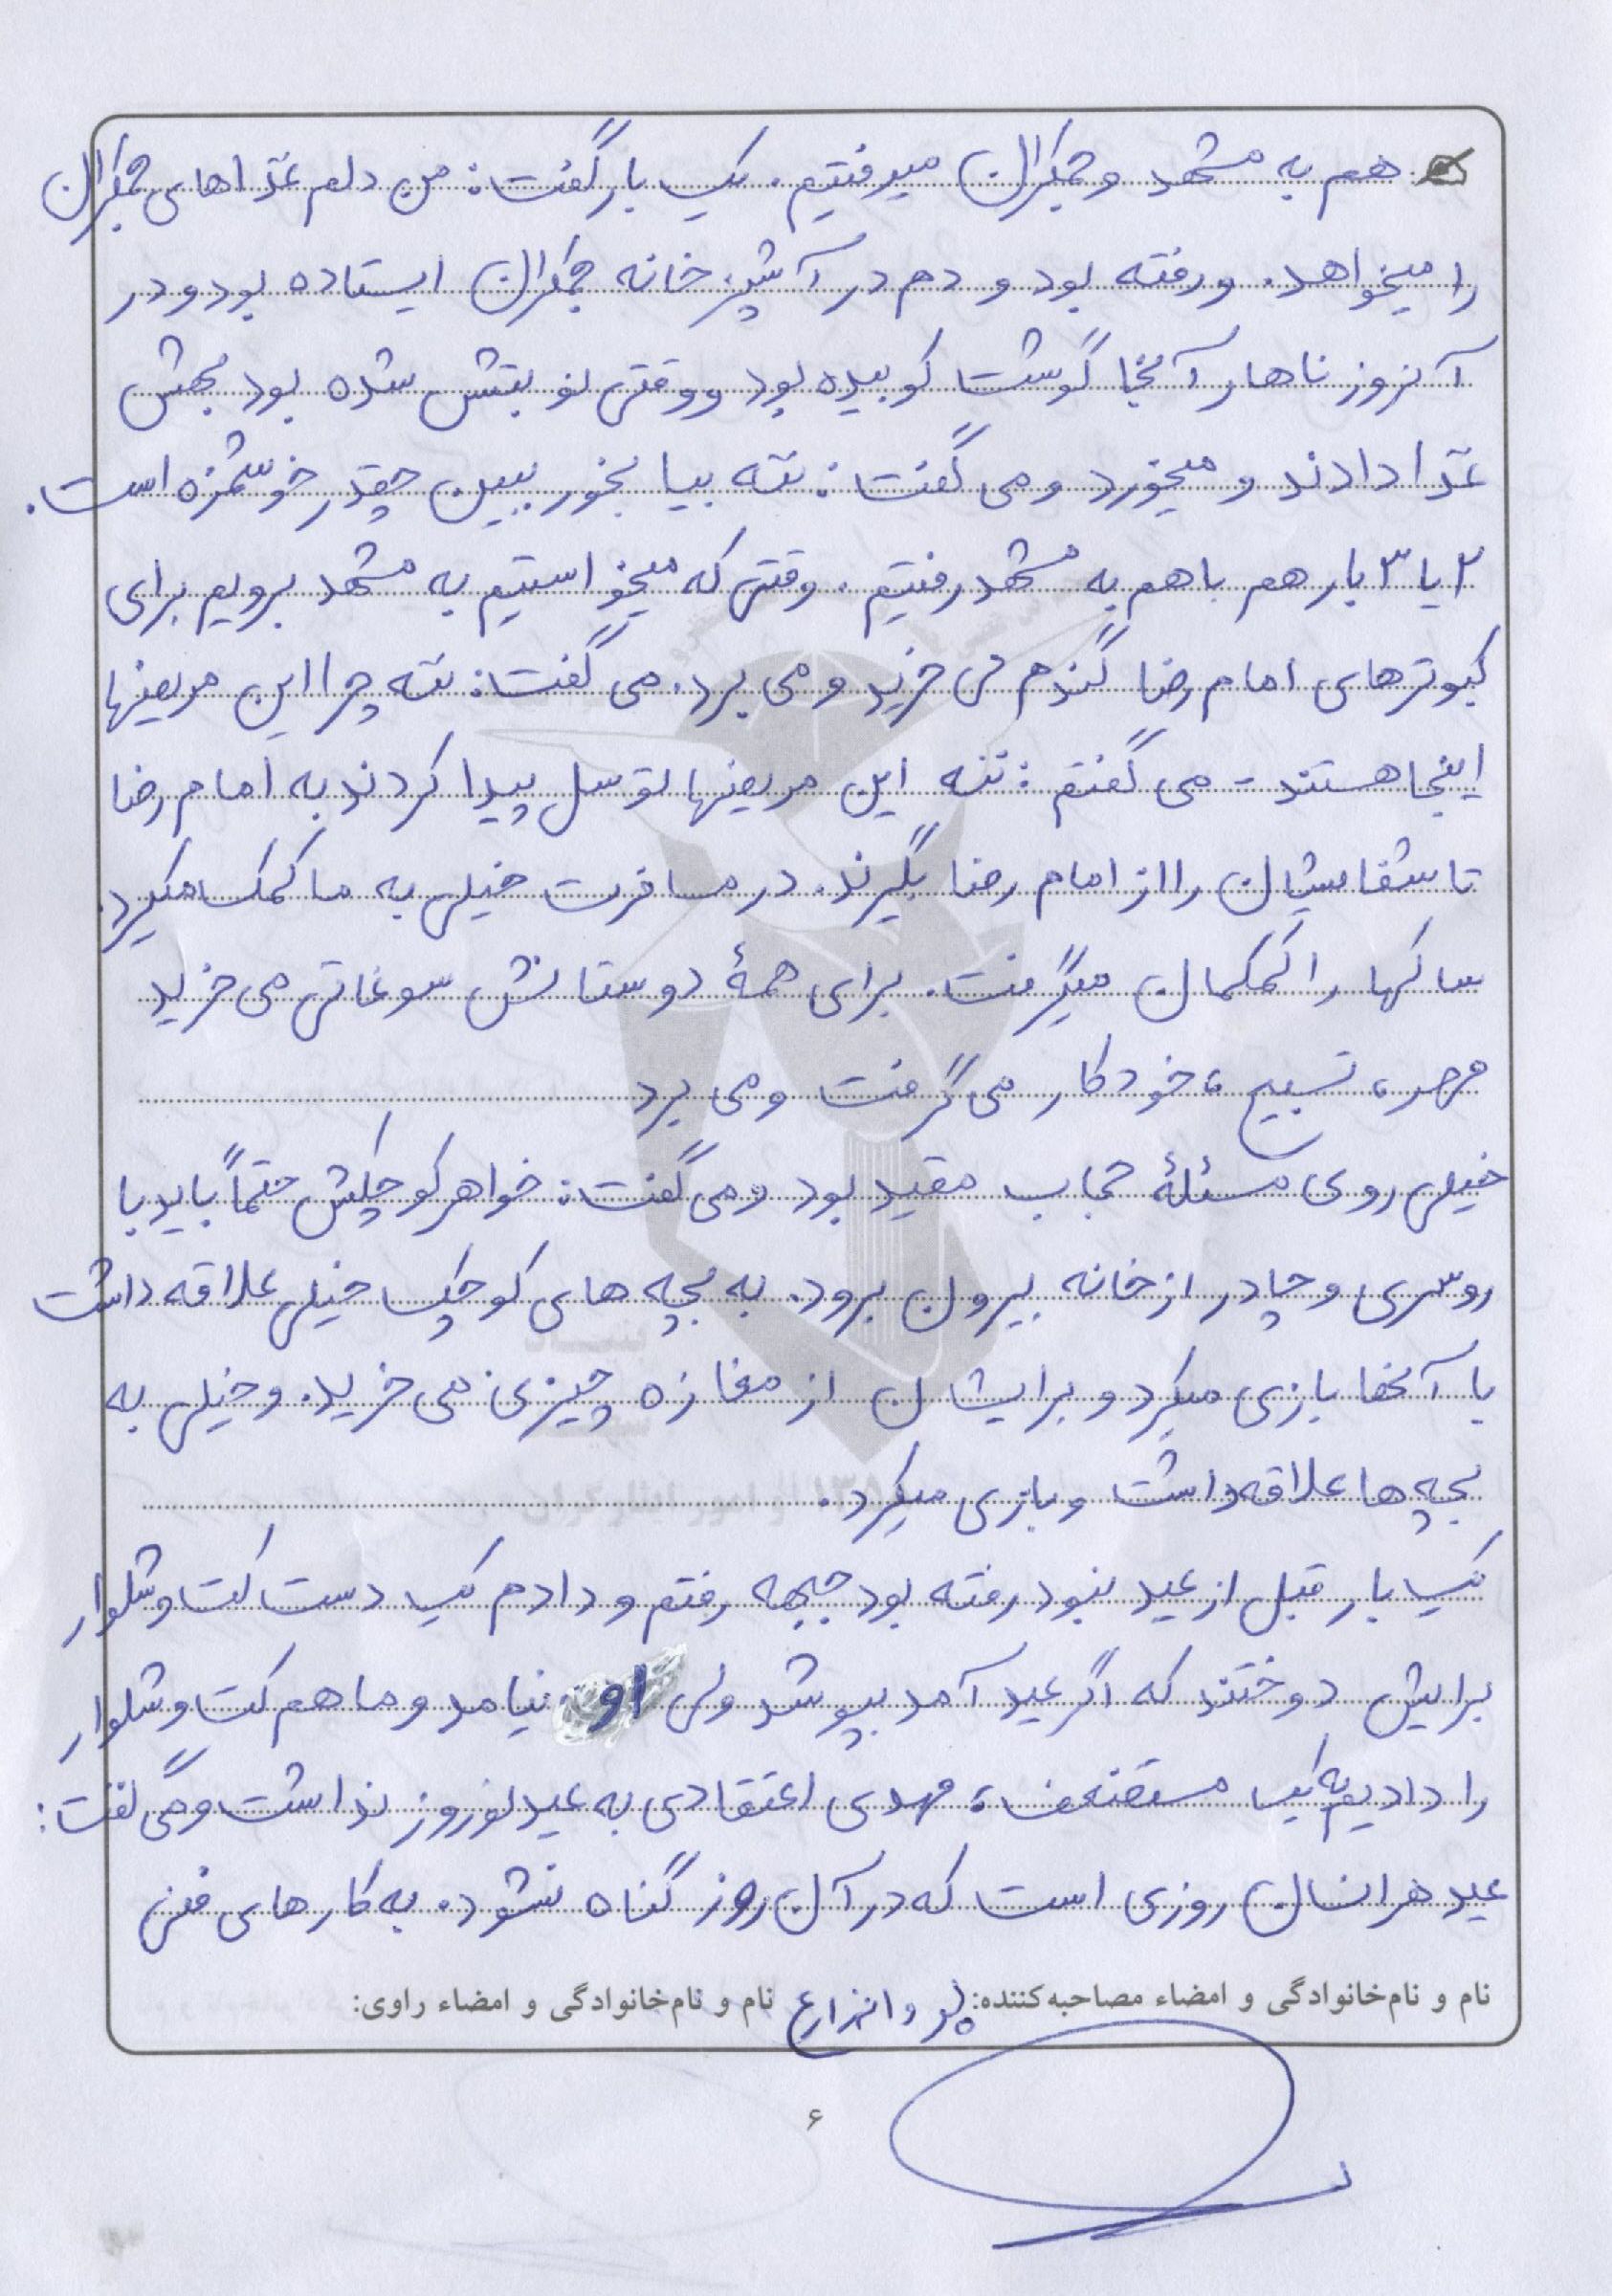 هم به مشهد و جمکران میرفتیم. یک بار گفت: من دلم غذاهای جمکران
را میخواهد. و رفته بود و دم در آشپزخانه جمکران ایستاده بود و در
آنروز ناهار آنجا گوشت کوبیده بود و وقتی نوبتش شده بود بهش
غذا دادند و میخورد و می گفت: ننه بیا بخور ببین چقدر خوشمزه است.
۲ یا ۳ بار هم با هم به مشهد رفتیم. وقتی که میخواستیم به مشهد برویم برای
کبوترهای امام رضا گندم می خرید و می برد. می گفت: ننه چرا این مریضها
اینجا هستند - می گفتم: ننه این مریضها توسل پیدا کردند به امام رضا
تا شفایشان را از امام رضا بگیرند. در مسافرت خیلی به ما کمک میکرد.
ساکها را کمکمان میگرفت. برای همهٔ دوستانش سوغاتی می خرید
مهر، تسبیح، خودکار می گرفت و می برد
خیلی روی مسئلهٔ حجاب مقید بود و می گفت: خواهر کوچکش حتماً باید با
روسری و چادر از خانه بیرون برود. به بچه های کوچک خیلی علاقه داشت
با آنها بازی میکرد و برایشان از مغازه چیزی می خرید. و خیلی به
بچه ها علاقه داشت و بازی میکرد.
یک بار قبل از عید نبود رفته بود جبهه رفتم و دادم یک دست کت و شلوار
برایش دوختند که اگر عید آمد بپوشد ولی او نیامد و ما هم کت و شلوار
را دادیم به یک مستضعف، مهدی اعتقادی به عید نوروز نداشت و می گفت:
عید هر انسان روزی است که در آن روز گناه نشود. به کارهای فنی
نام و نام‌خانوادگی و امضاء مصاحبه‌کننده: نام و نام‌خانوادگی و امضاء راوی:
۶